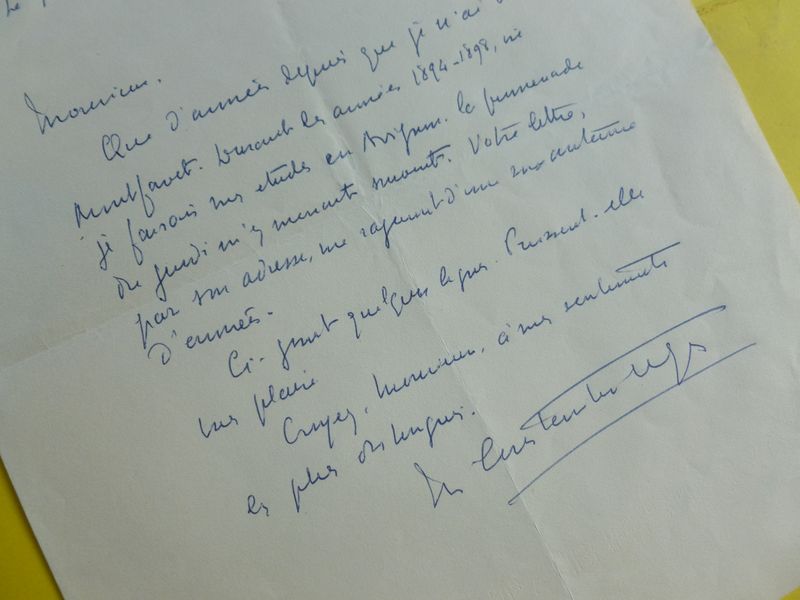 Le
Monsieur.
Que d'années depuis que je n'ai
Montfavet. Durant les années 1894-1898, où
je faisais mes études en Avignon. la promenade
du jeudi m'y menait souvent. Votre lettre,
par son adresse, me rajeunit d'une soixantaine
d'années.
Ci-joint quelques lignes. Puissent-elles
vous plaire
Croyez, Monsieur, à mes sentiments
les plus distingués.